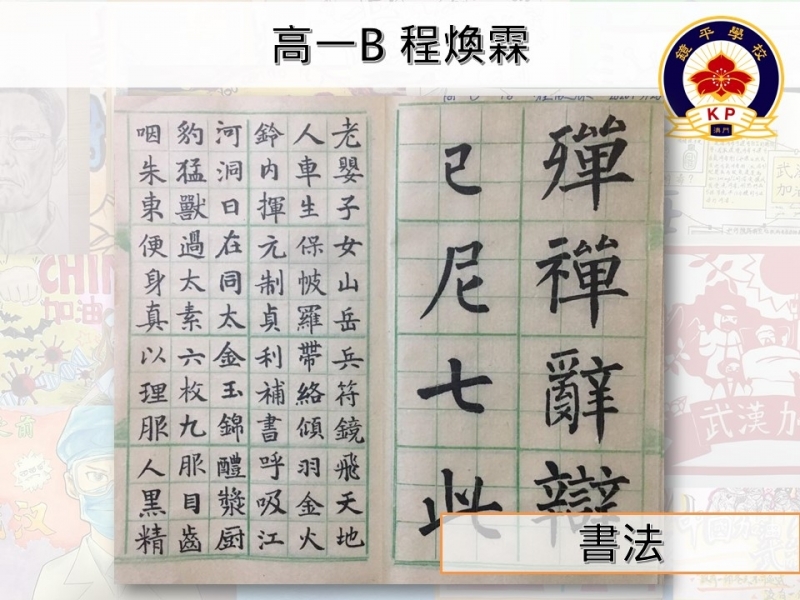 高一B 程煥霖
鏡平學校
KP
澳門
殫禪辭
已尼七此
老嬰子女山岳兵符鏡飛天地
人車生保帔羅帶絡傾羽金火
鈴內揮元制貞利補書呼吸江
河洞日在同太金玉錦醴漿厨
豹猛獸過太素六枚九服目齒
咽朱東便身真以理服人黑精
CHIN
加油
武漢
加
武漢加
書法